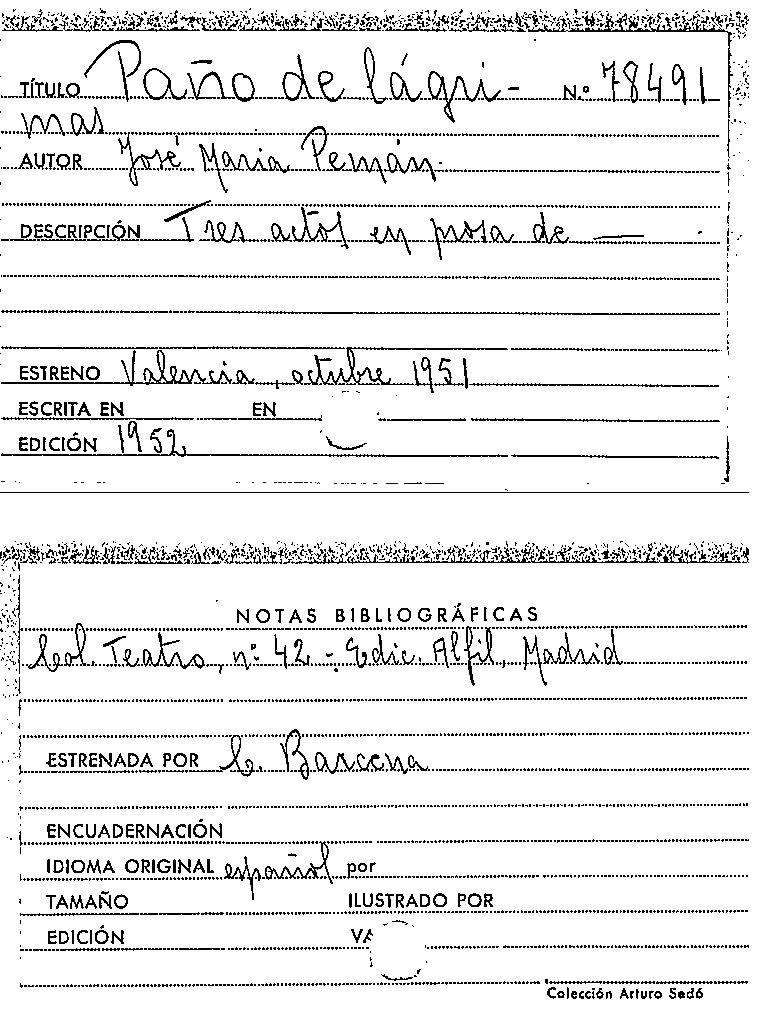 TÍTULO Paño de lágri- N.º 78491
mas
AUTOR José Maria Pemán.
DESCRIPCIÓN Tres actos en prosa de —
ESTRENO Valencia, octubre 1951
ESCRITA EN EN
EDICIÓN 1952
NOTAS BIBLIOGRÁFICAS
Col. Teatro, nº 42 - Edic. Alfil, Madrid
ESTRENADA POR C. Barcena
ENCUADERNACIÓN
IDIOMA ORIGINAL español por
TAMAÑO ILUSTRADO POR
EDICIÓN
Colección Arturo Sedó